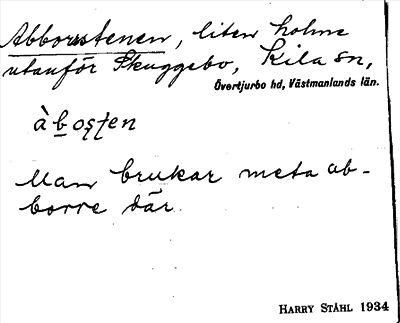 Abborrstenen, liten holme
utanför Skuggebo, Kila sn,
Övertjurbo hd, Västmanlands län.
àbos̨t̨en
Man brukar meta ab-
borre där.
HARRY STÅHL 1934